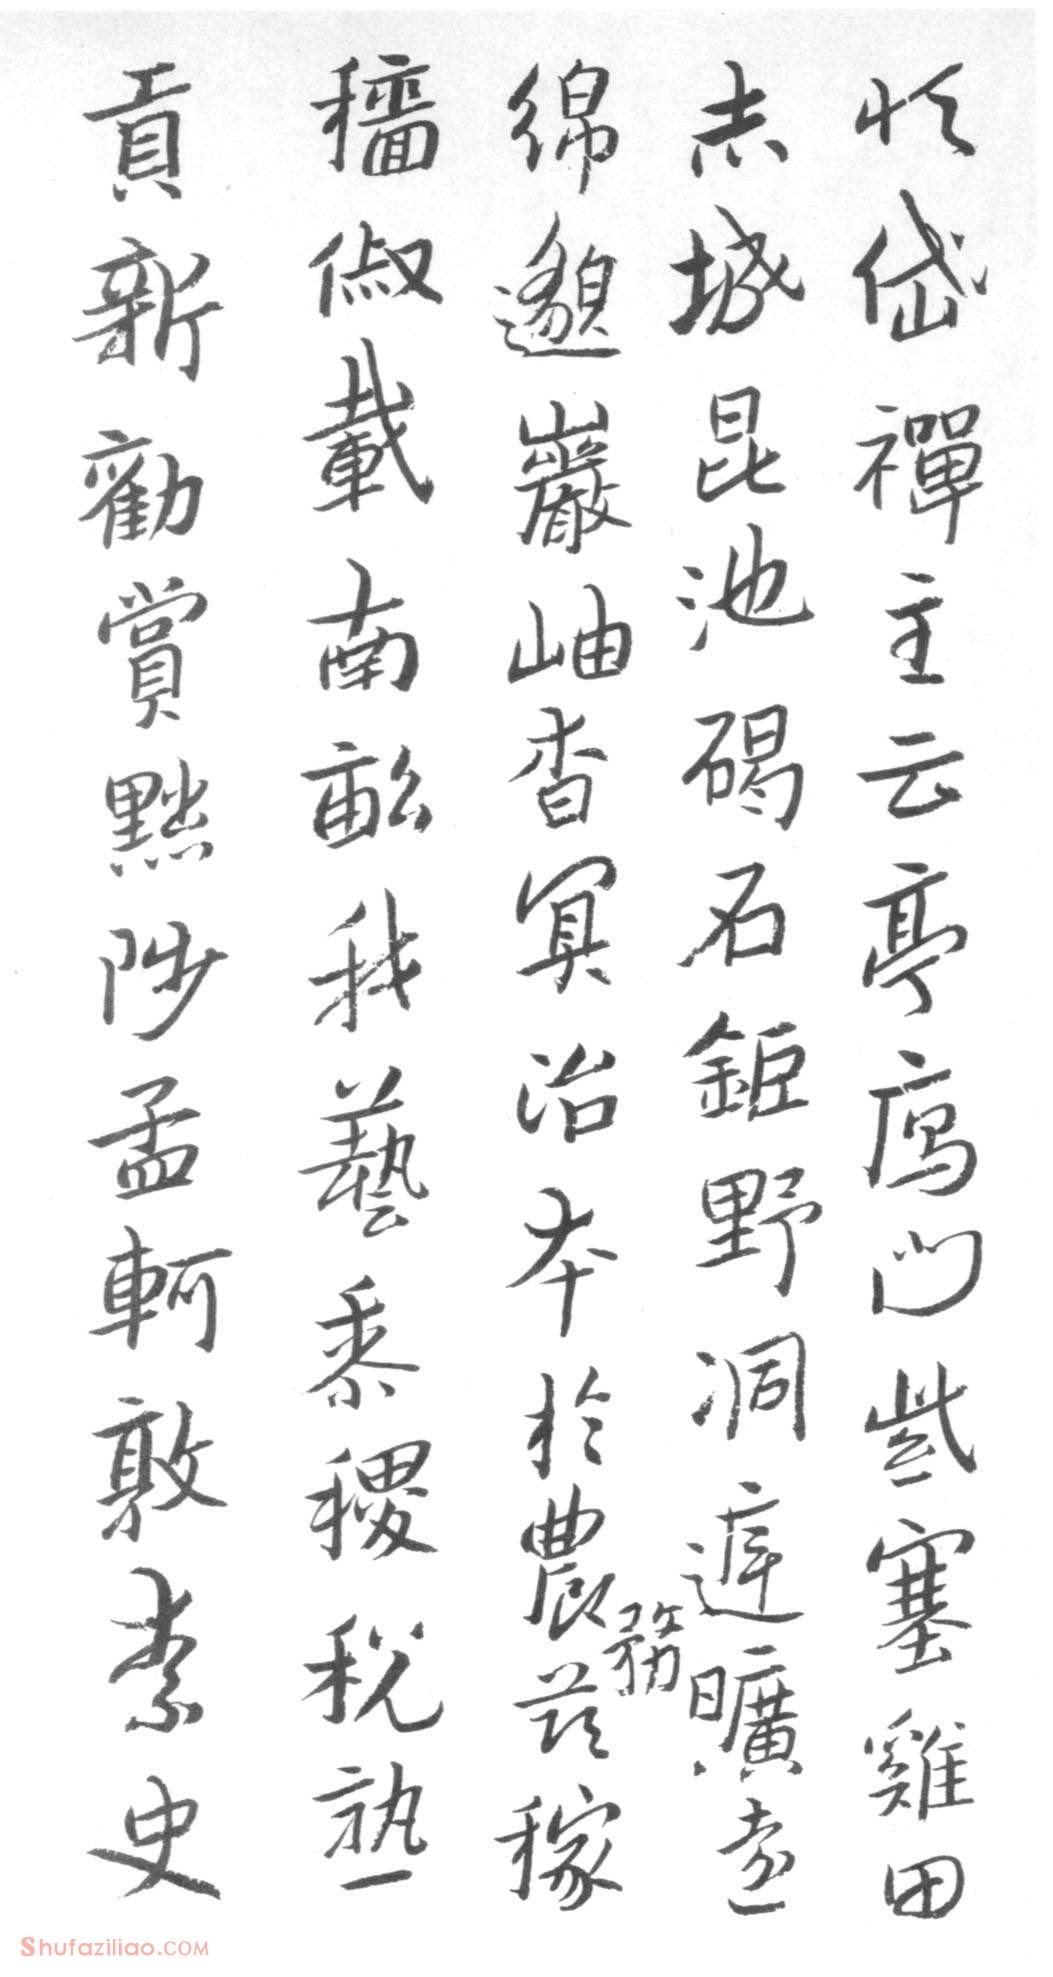 恒岱禪主云亭鴈門紫塞雞田
赤城昆池碣石鉅野洞庭曠遠
綿邈巖岫杳冥治本於農務茲稼
穡俶載南畝我藝黍稷稅熟
貢新勸賞黜陟孟軻敦素史
Shufaziliao.COM